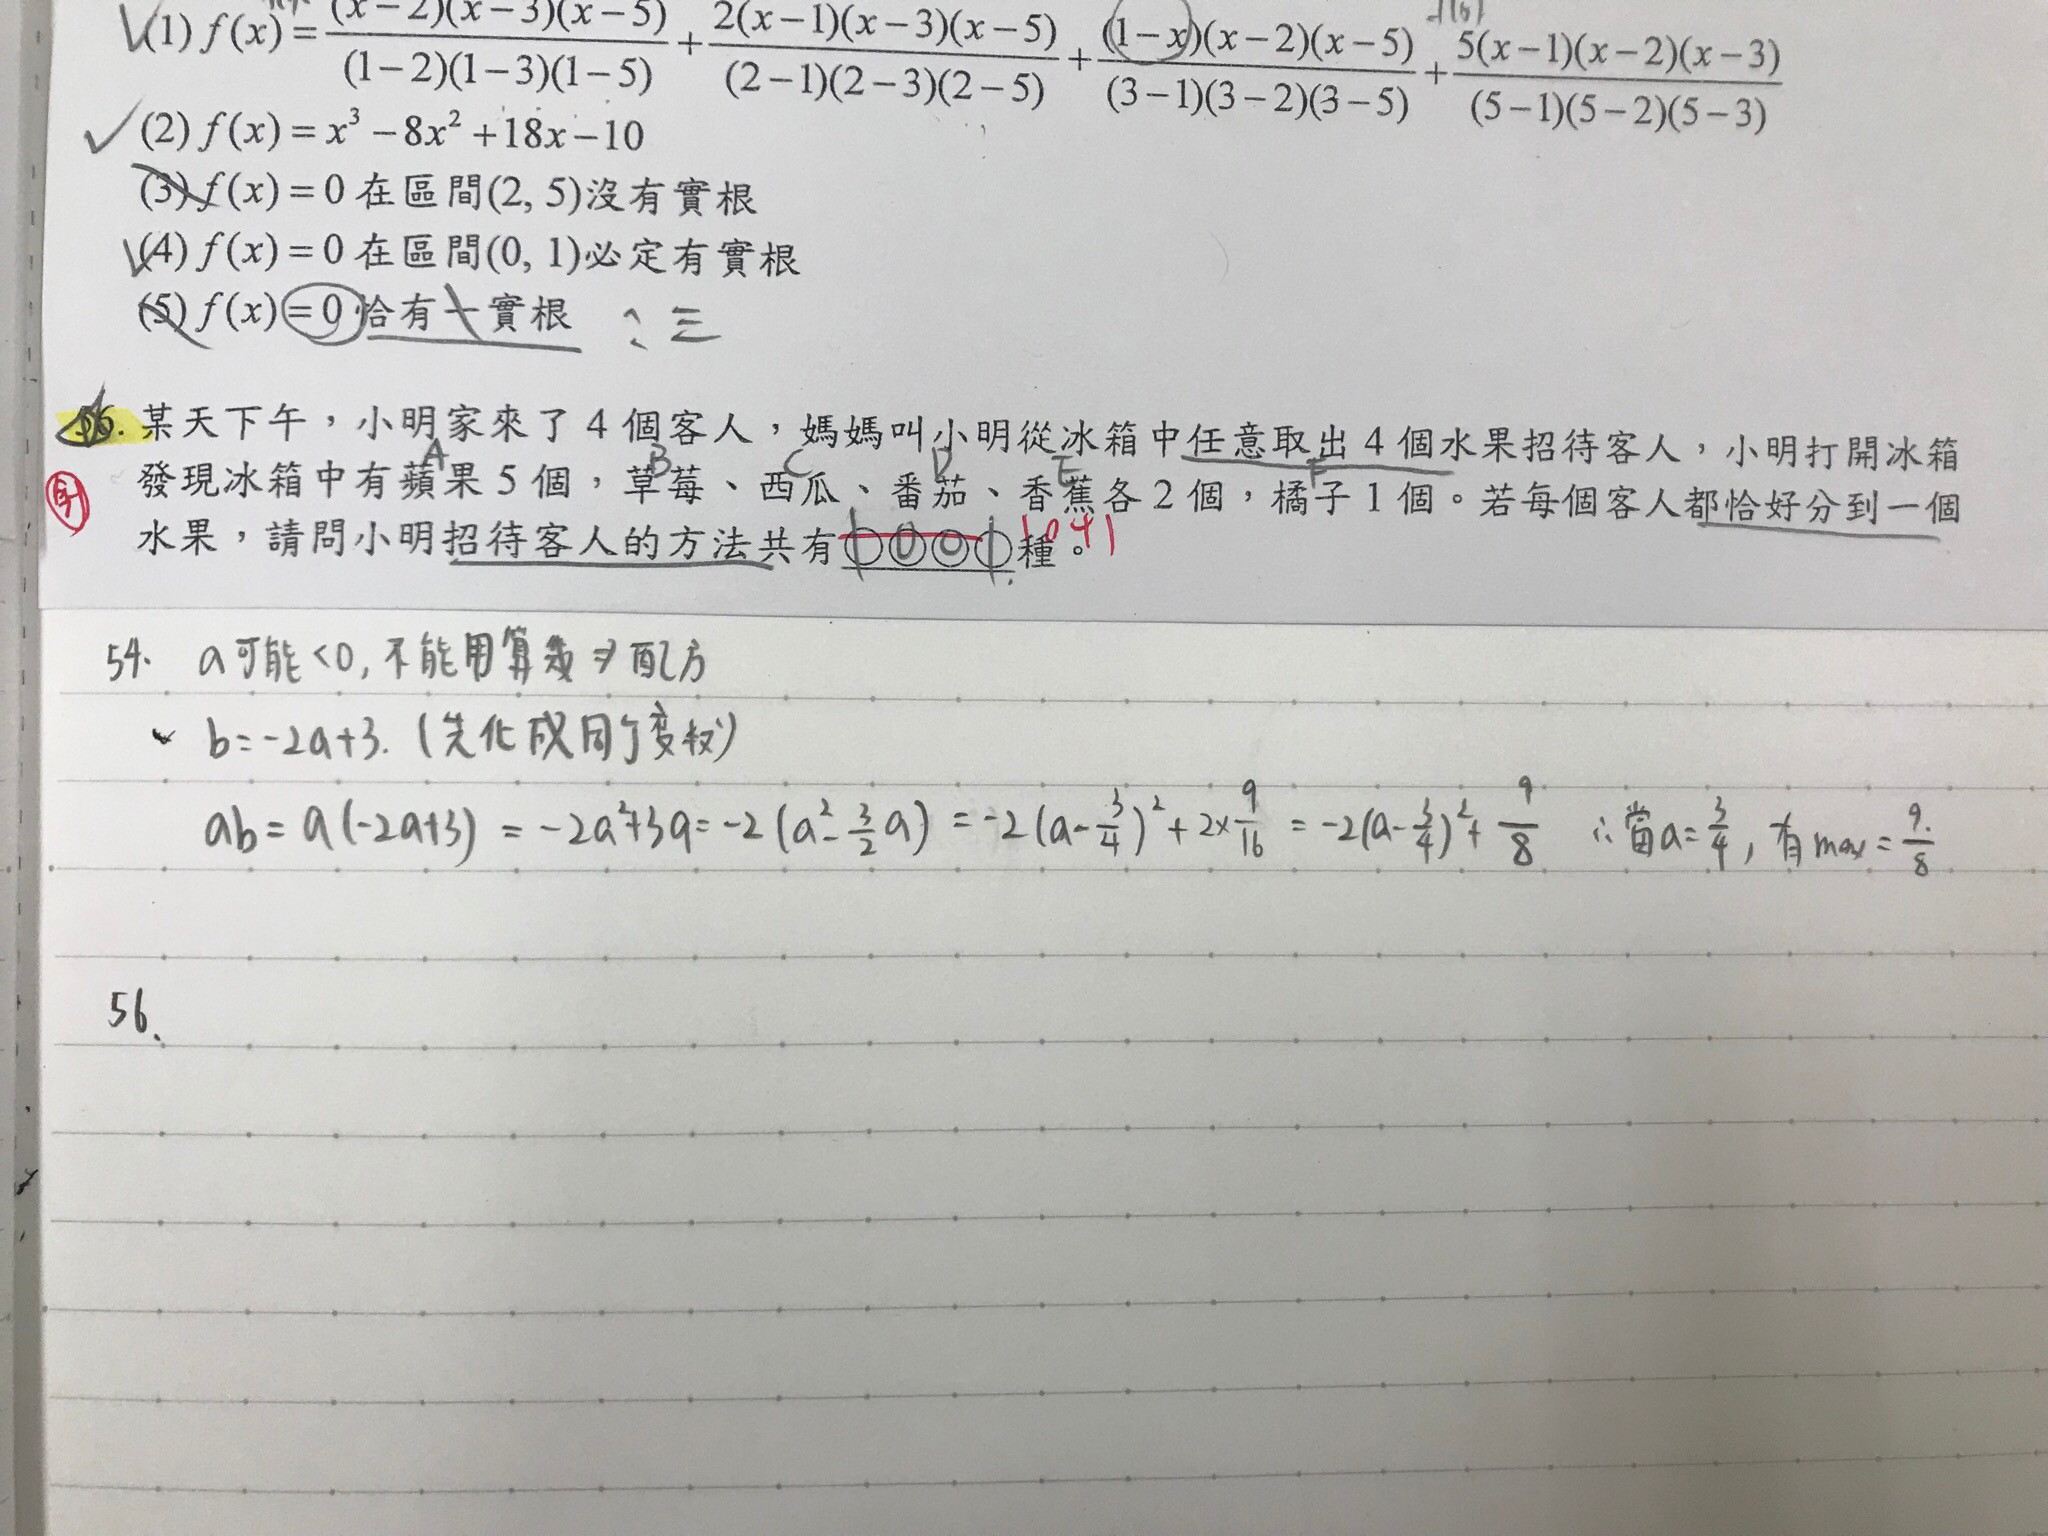 (1) f(x) = (x−2)(x−3)(x−5)/(1−2)(1−3)(1−5) + 2(x−1)(x−3)(x−5)/(2−1)(2−3)(2−5) + (1−x)(x−2)(x−5)/(3−1)(3−2)(3−5) + 5(x−1)(x−2)(x−3)/(5−1)(5−2)(5−3)
(2) f(x) = x³ −8x² +18x −10
(3) f(x) = 0 在區間(2, 5)沒有實根
(4) f(x) = 0 在區間(0, 1)必定有實根
(5) f(x) = 0 恰有一實根 三
56. 某天下午，小明家來了 4 個客人，媽媽叫小明從冰箱中任意取出 4 個水果招待客人，小明打開冰箱
A B C D E F
發現冰箱中有蘋果 5 個，草莓、西瓜、番茄、香蕉各 2 個，橘子 1 個。若每個客人都恰好分到一個
水果，請問小明招待客人的方法共有○○○○種。 1041
54. a可能<0, 不能用算幾⇒配方
b=-2a+3. (先化成同個變數)
ab = a(-2a+3) = -2a²+3a = -2(a²-3/2a) = -2(a-3/4)²+2×9/16 = -2(a-3/4)²+9/8 ∴當a=3/4, 有max=9/8
56.